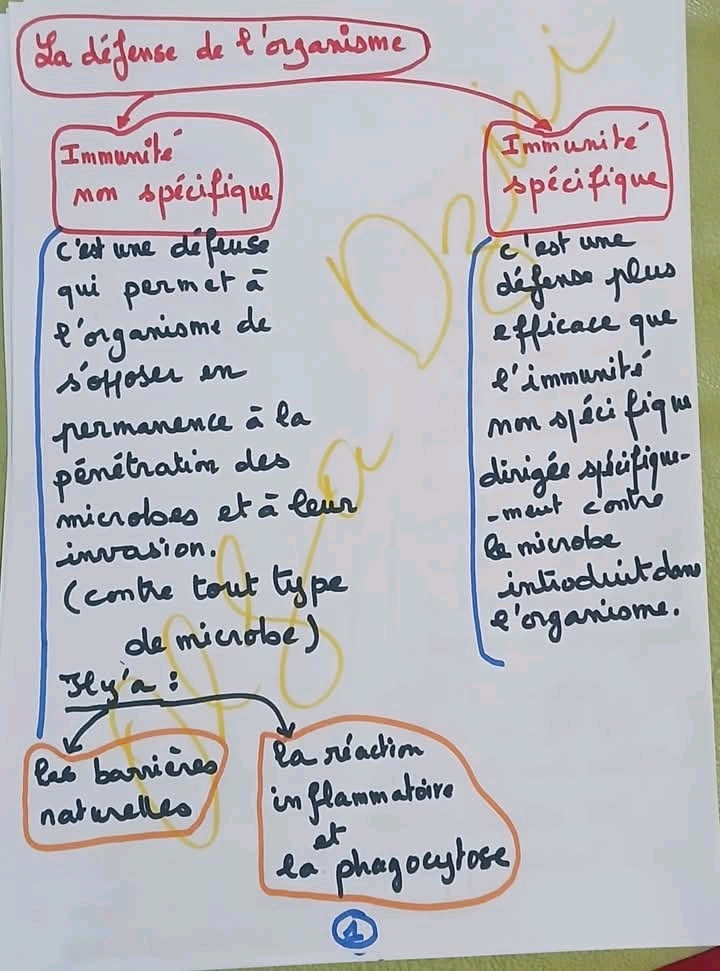 La défense de l'organisme
Immunité
non spécifique
c'est une défense
qui permet à
l'organisme de
s'opposer en
permanence à la
pénétration des
microbes et à leur
invasion.
(contre tout type
de microbe)
Il y'a :
Les barrières
naturelles
La réaction
inflammatoire
et
la phagocytose
Immunité
spécifique
c'est une
défense plus
efficace que
l'immunité
non spécifique
dirigée spécifique-
-ment contre
le microbe
introduit dans
l'organisme.
1